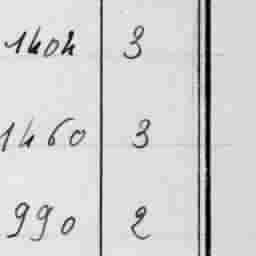 1404 3
1460 3
990 2